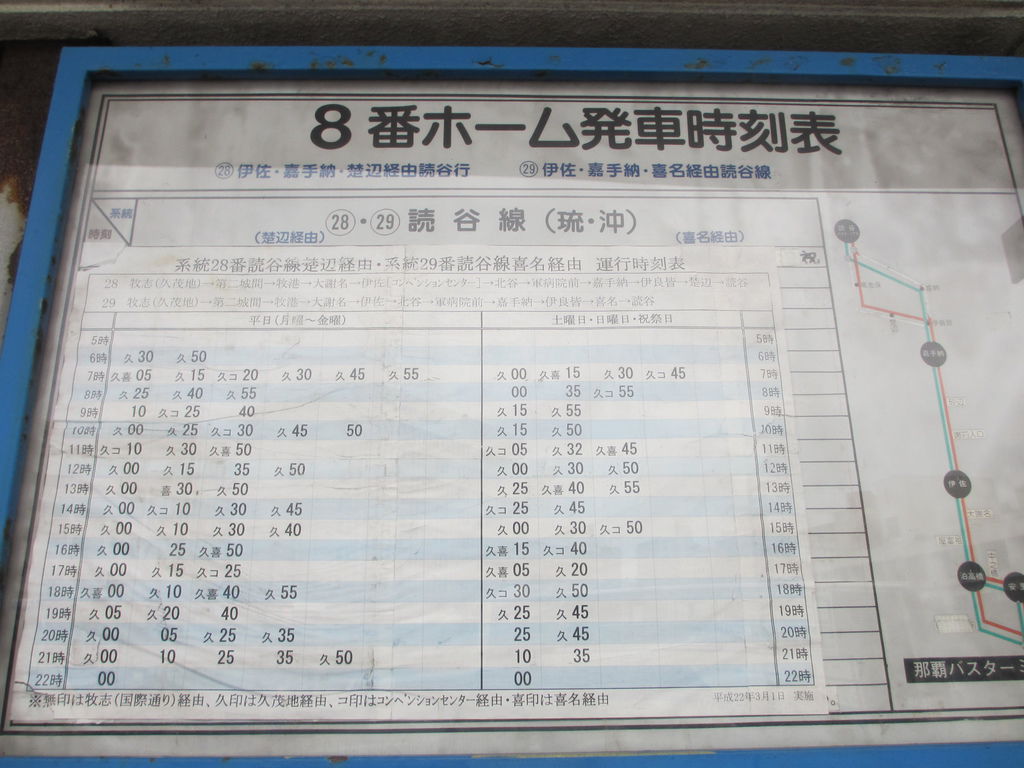 8番ホーム発車時刻表
㉘伊佐・嘉手納・楚辺経由読谷行 ㉙伊佐・嘉手納・喜名経由読谷線
系統
時刻
(楚辺経由) ㉘・㉙読谷線(琉・沖) (喜名経由)
系統28番読谷線楚辺経由・系統29番読谷線喜名経由 運行時刻表
28 牧志(久茂地)→第二城間→牧港→大謝名→伊佐[コンベンションセンター]→北谷→軍病院前→嘉手納→伊良皆→楚辺→読谷
29 牧志(久茂地)→第二城間→牧港→大謝名→伊佐→北谷→軍病院前→嘉手納→伊良皆→喜名→読谷
平日(月曜～金曜) 土曜日・日曜日・祝祭日
5時 5時
6時 久30 久50 6時
7時 久喜05 久15 久コ20 久30 久45 久55 久00 久喜15 久30 久コ45 7時
8時 久25 久40 久55 00 35 久コ55 8時
9時 10 久コ25 40 久15 久55 9時
10時 久00 久25 久コ30 久45 50 久15 久50 10時
11時 久コ10 久30 久喜50 久コ05 久32 久喜45 11時
12時 久00 久15 35 久50 久00 久30 久50 12時
13時 久00 喜30 久50 久25 久喜40 久55 13時
14時 久00 久コ10 久30 久45 久コ25 久45 14時
15時 久00 久10 久30 久40 久00 久30 久コ50 15時
16時 久00 25 久喜50 久喜15 久コ40 16時
17時 久00 久15 久コ25 久喜05 久20 17時
18時 久喜00 久10 久喜40 久55 久コ30 久50 18時
19時 久05 久20 40 久25 久45 19時
20時 久00 05 久25 久35 25 久45 20時
21時 久00 10 25 35 久50 10 35 21時
22時 00 00 22時
※無印は牧志(国際通り)経由、久印は久茂地経由、コ印はコンベンションセンター経由・喜印は喜名経由 平成22年3月1日 実施
祝
読谷
嘉手納
伊佐
大謝名
泊高橋
那覇バスター